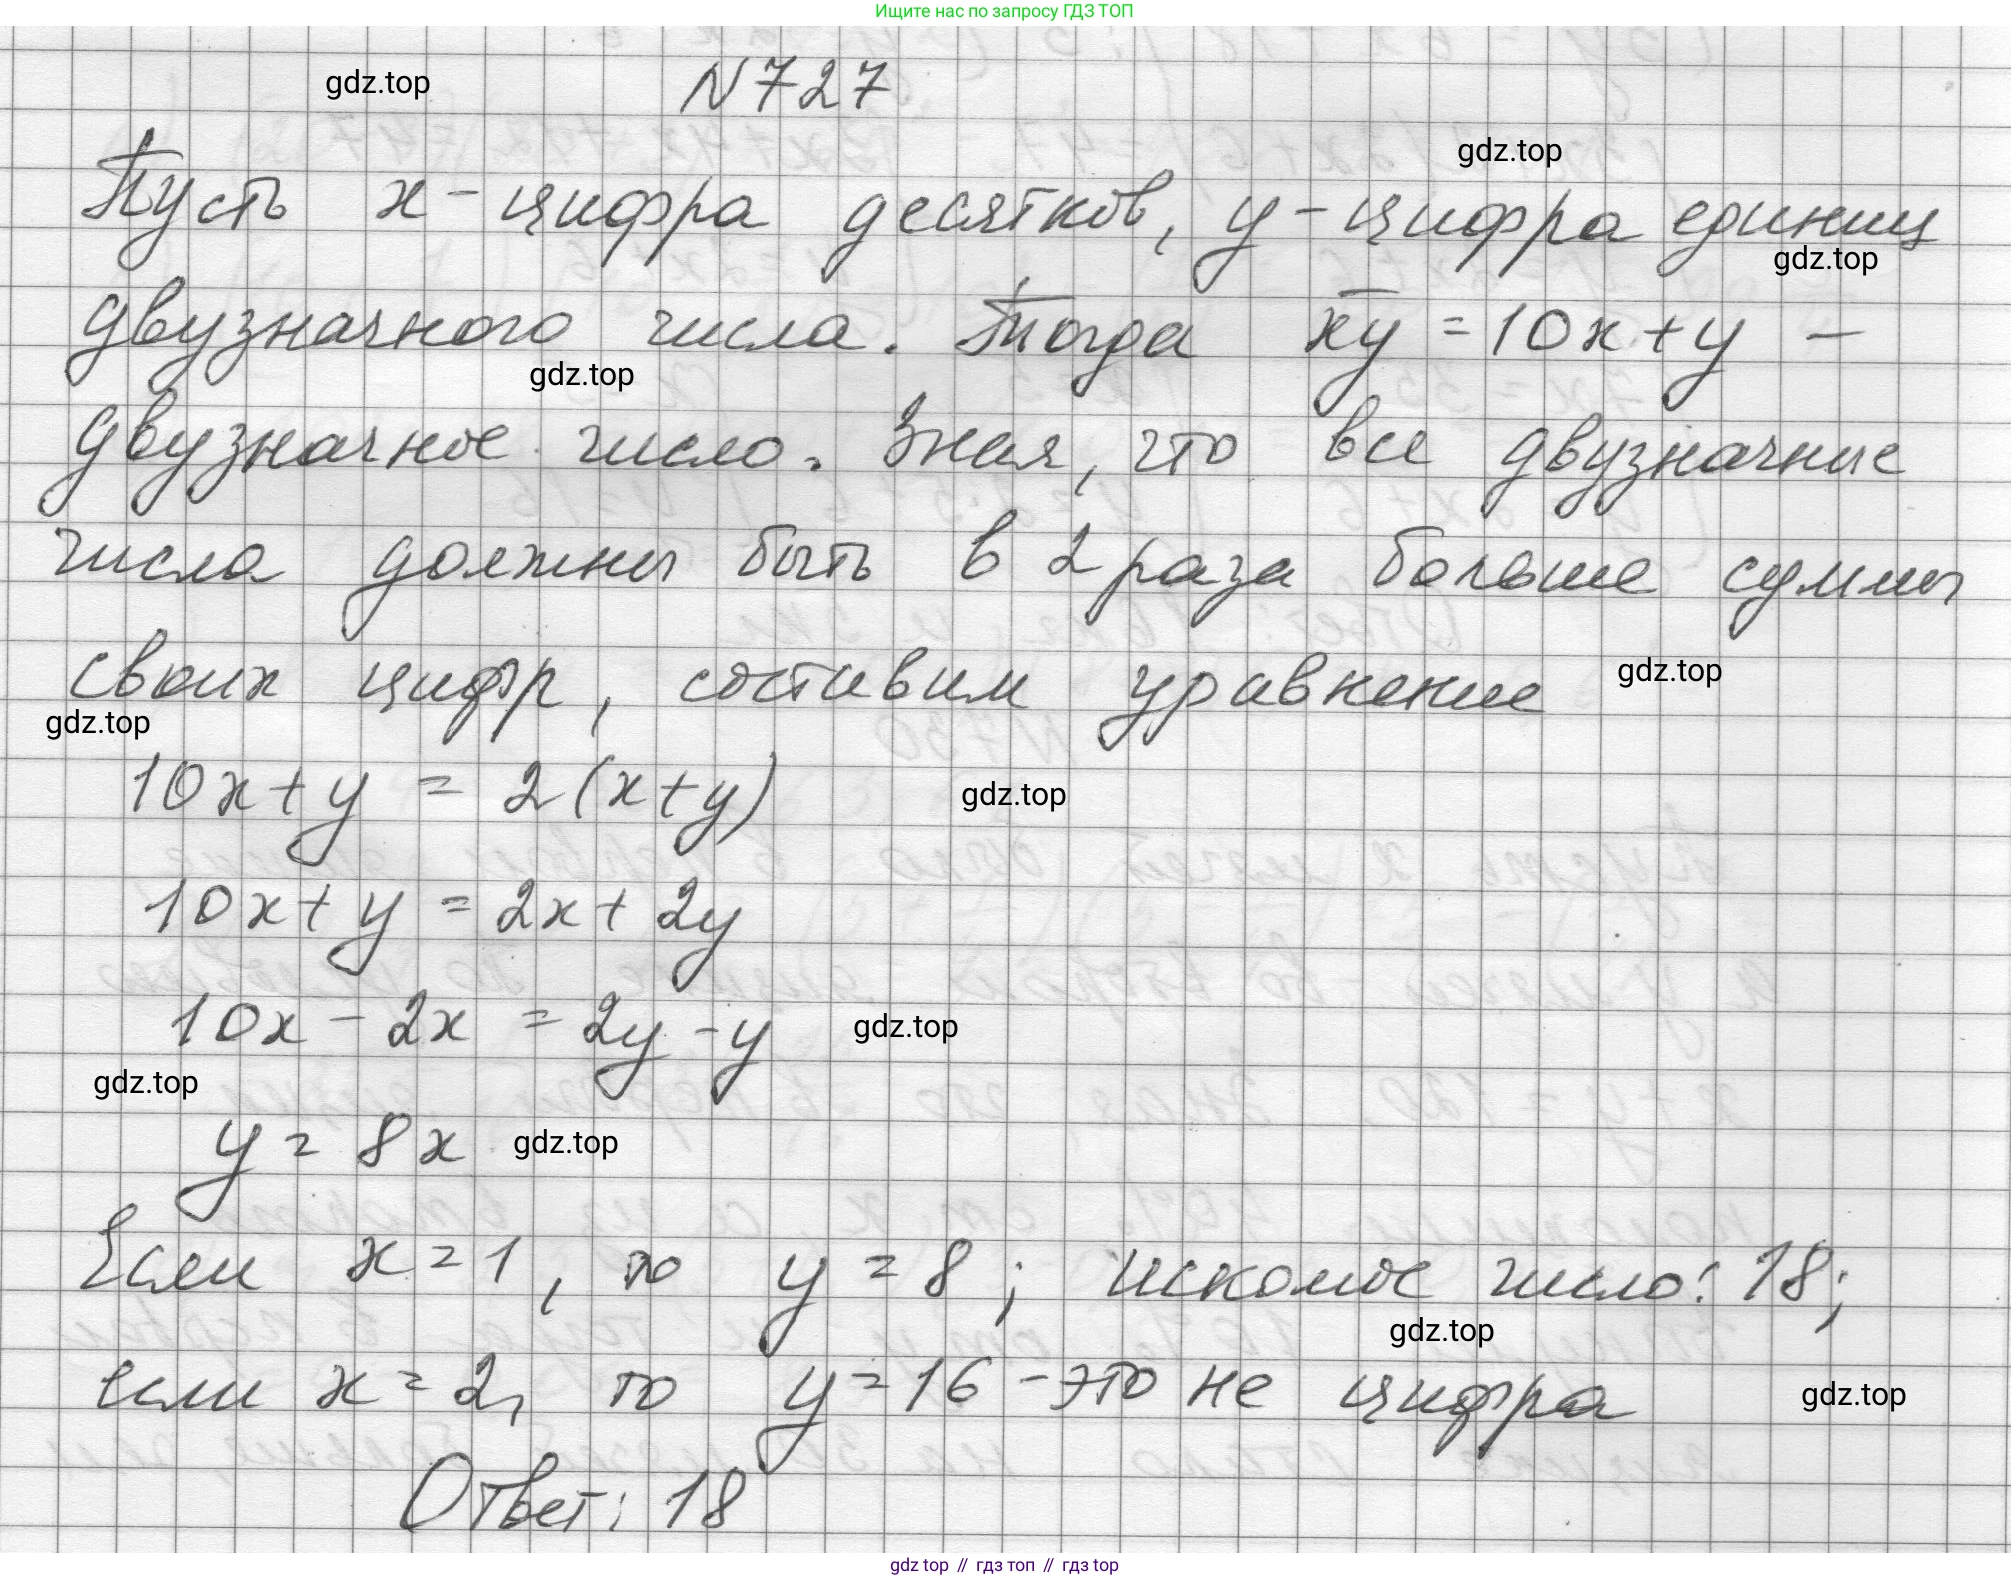 Ищите нас по запросу ГДЗ ТОП
N 727
gdz.top
gdz.top
Пусть x - цифра десятков, y - цифра единиц
gdz.top
двузначного числа. Тогда xy = 10x + y -
gdz.top
двузначное число. Зная, что все двузначные
числа должны быть в 2 раза больше суммы
своих цифр, составим уравнение
gdz.top
gdz.top
10x + y = 2(x + y)
gdz.top
10x + y = 2x + 2y
10x - 2x = 2y - y
gdz.top
gdz.top
y = 8x
gdz.top
Если x = 1, то y = 8; искомое число: 18;
gdz.top
если x = 2, то y = 16 - это не цифра
gdz.top
Ответ: 18
gdz top // гдз топ // гдз top